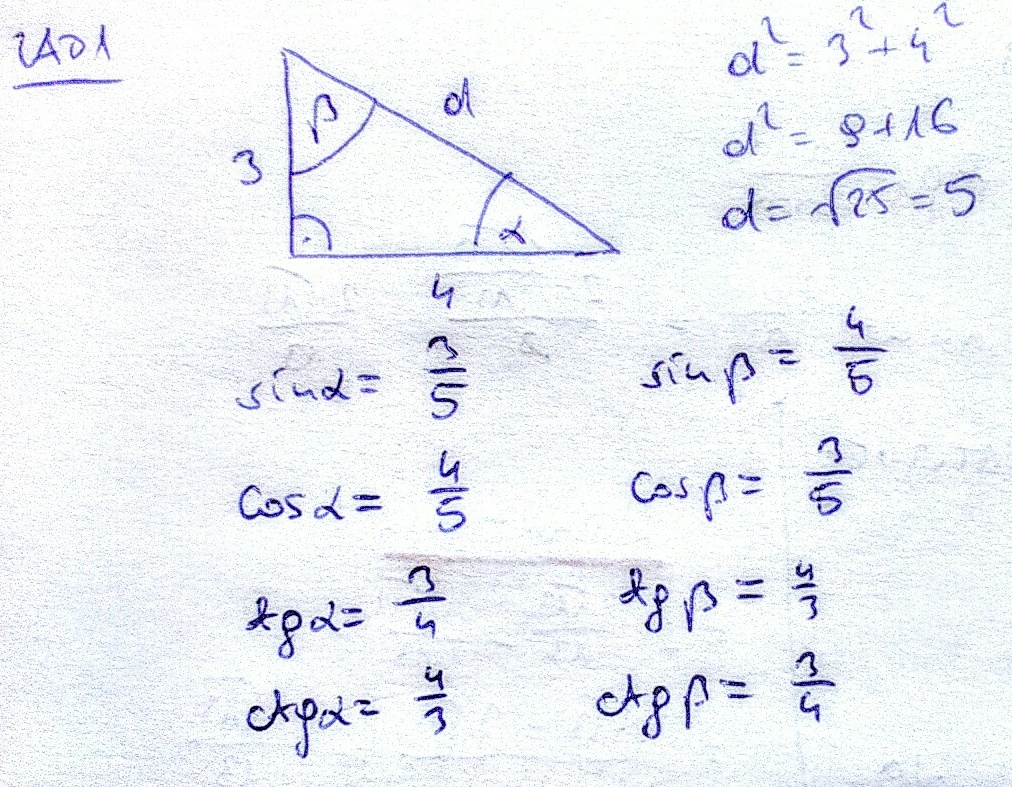 ZAD1
d² = 3² + 4²
β
d
d² = 9 + 16
3
d = √25 = 5
α
4
sin α = 3/5
sin β = 4/5
cos α = 4/5
cos β = 3/5
tg α = 3/4
tg β = 4/3
ctg α = 4/3
ctg β = 3/4